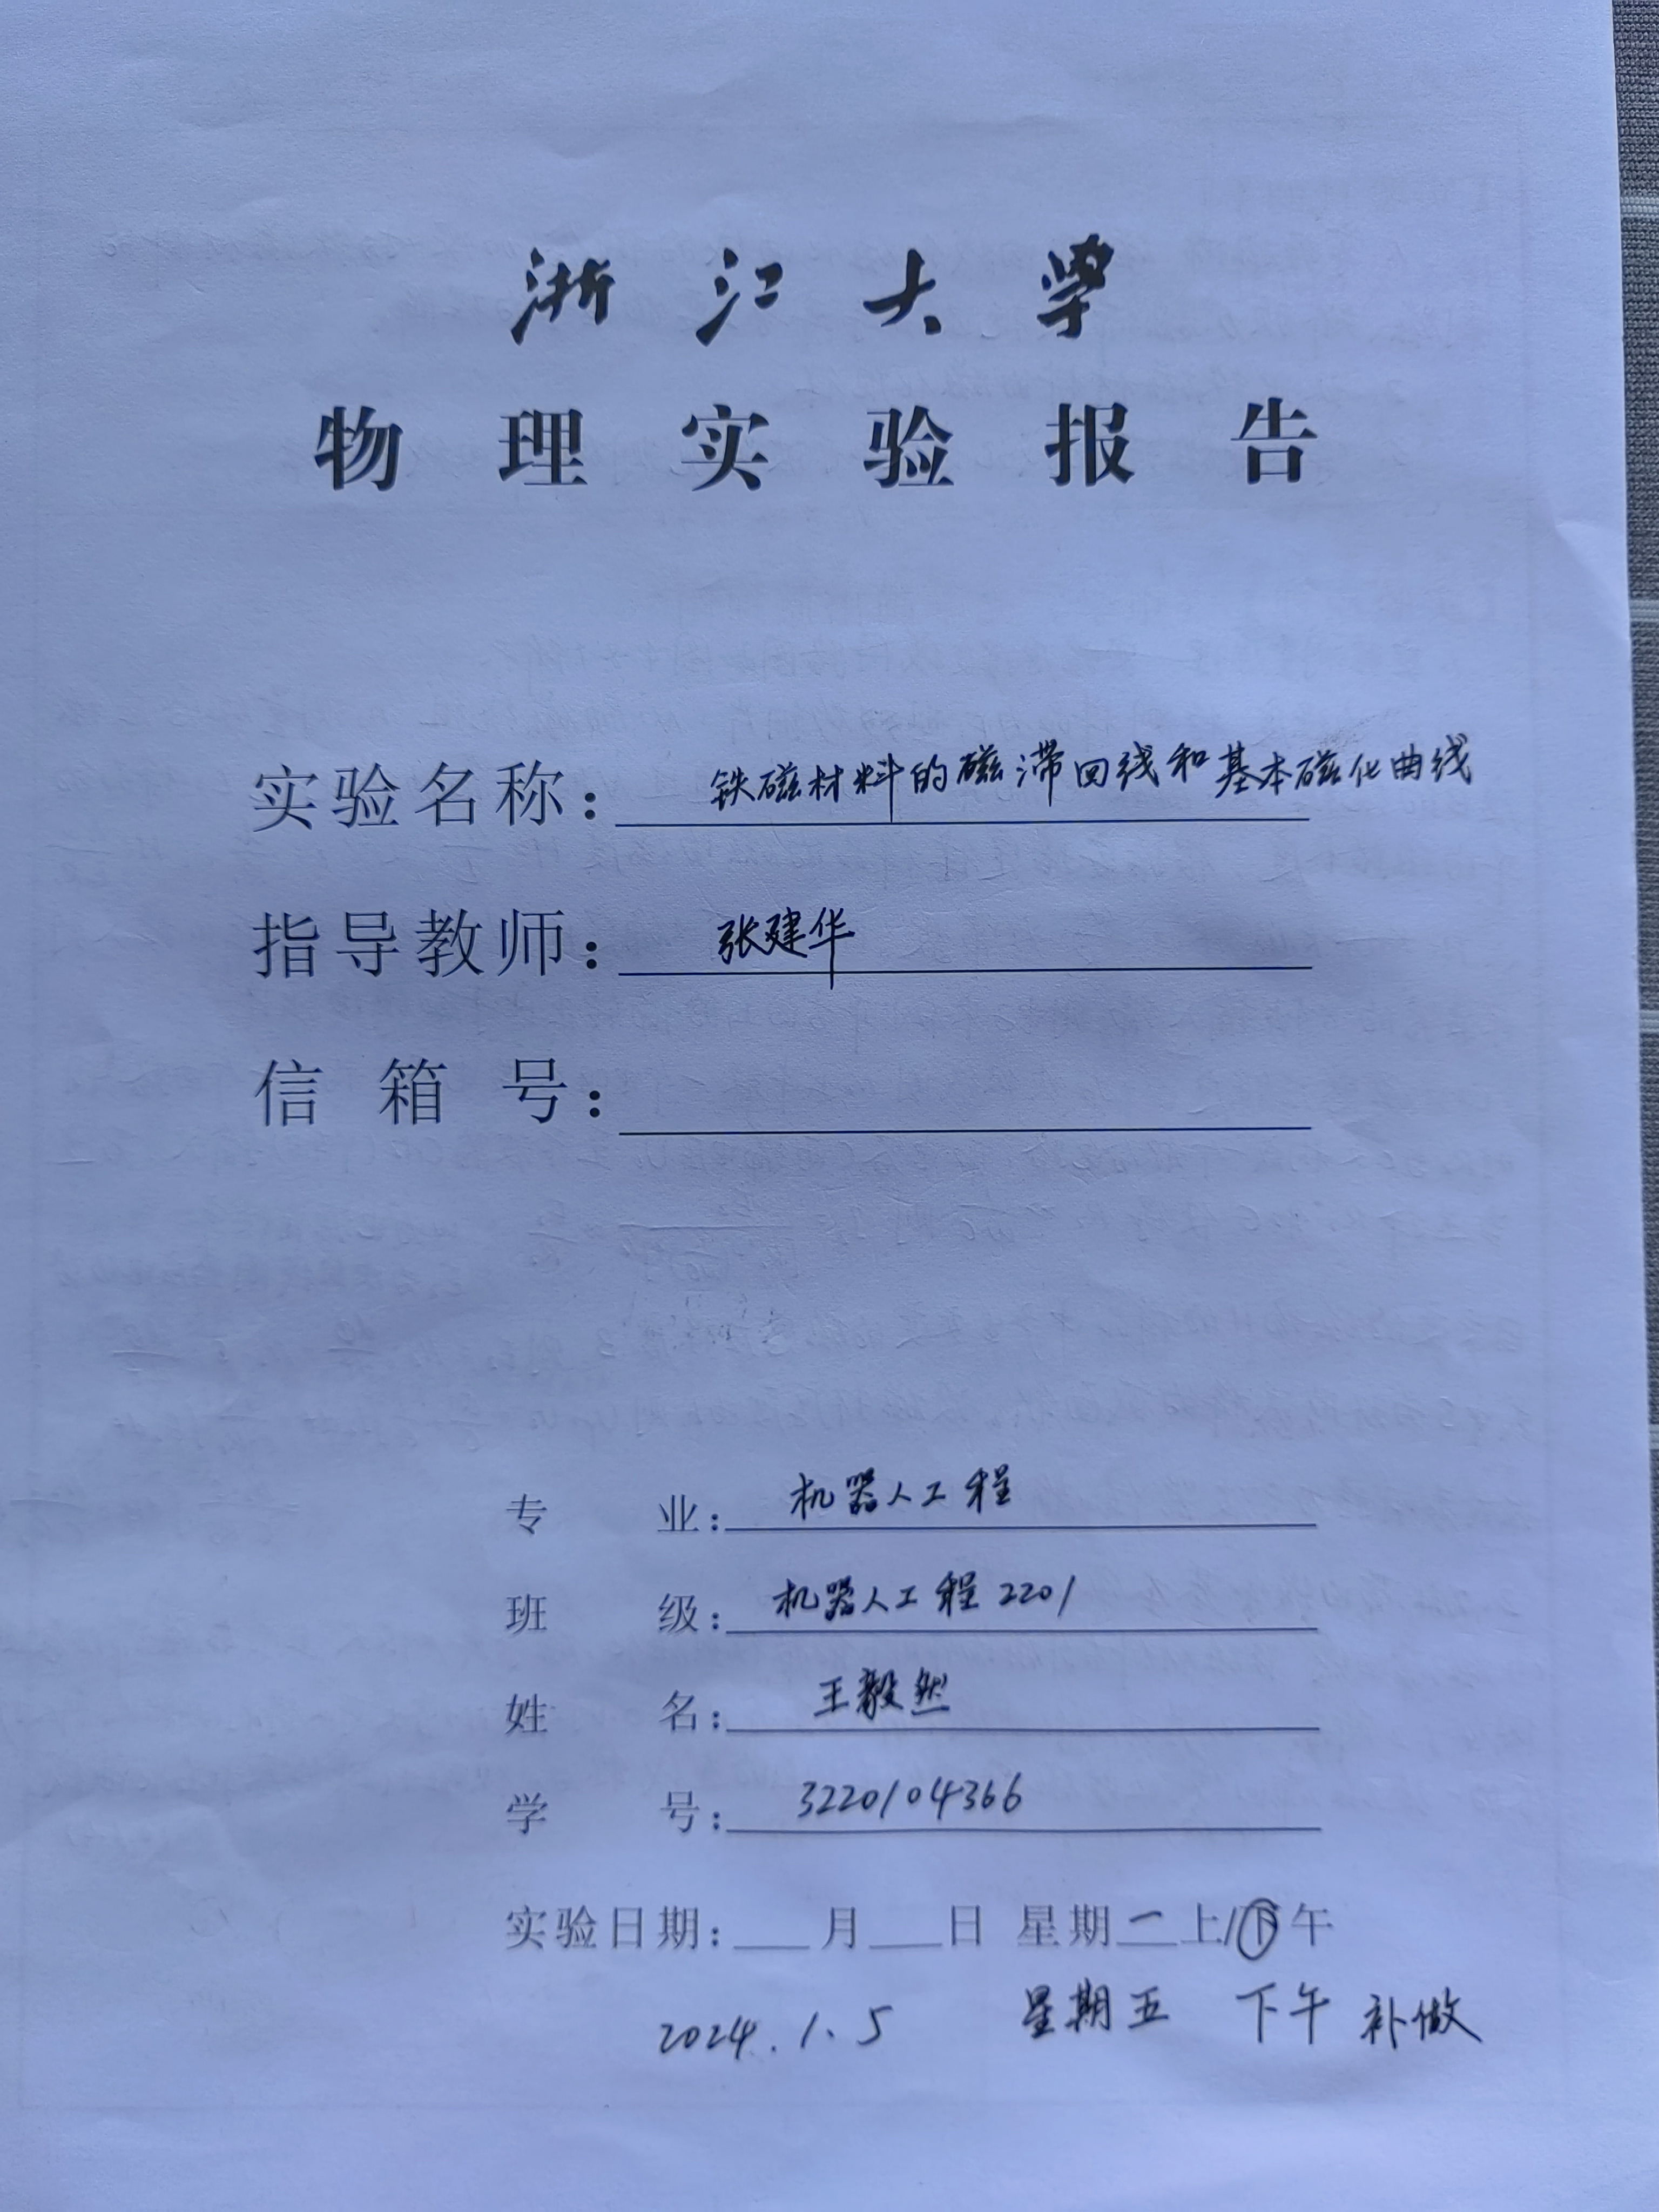 浙江大学
物理实验报告
实验名称：铁磁材料的磁滞回线和基本磁化曲线
指导教师：张建华
信箱号：
专业：机器人工程
班级：机器人工程2201
姓名：王毅然
学号：3220104366
实验日期：___月___日 星期一上/下午
2024.1.5 星期五 下午 补做